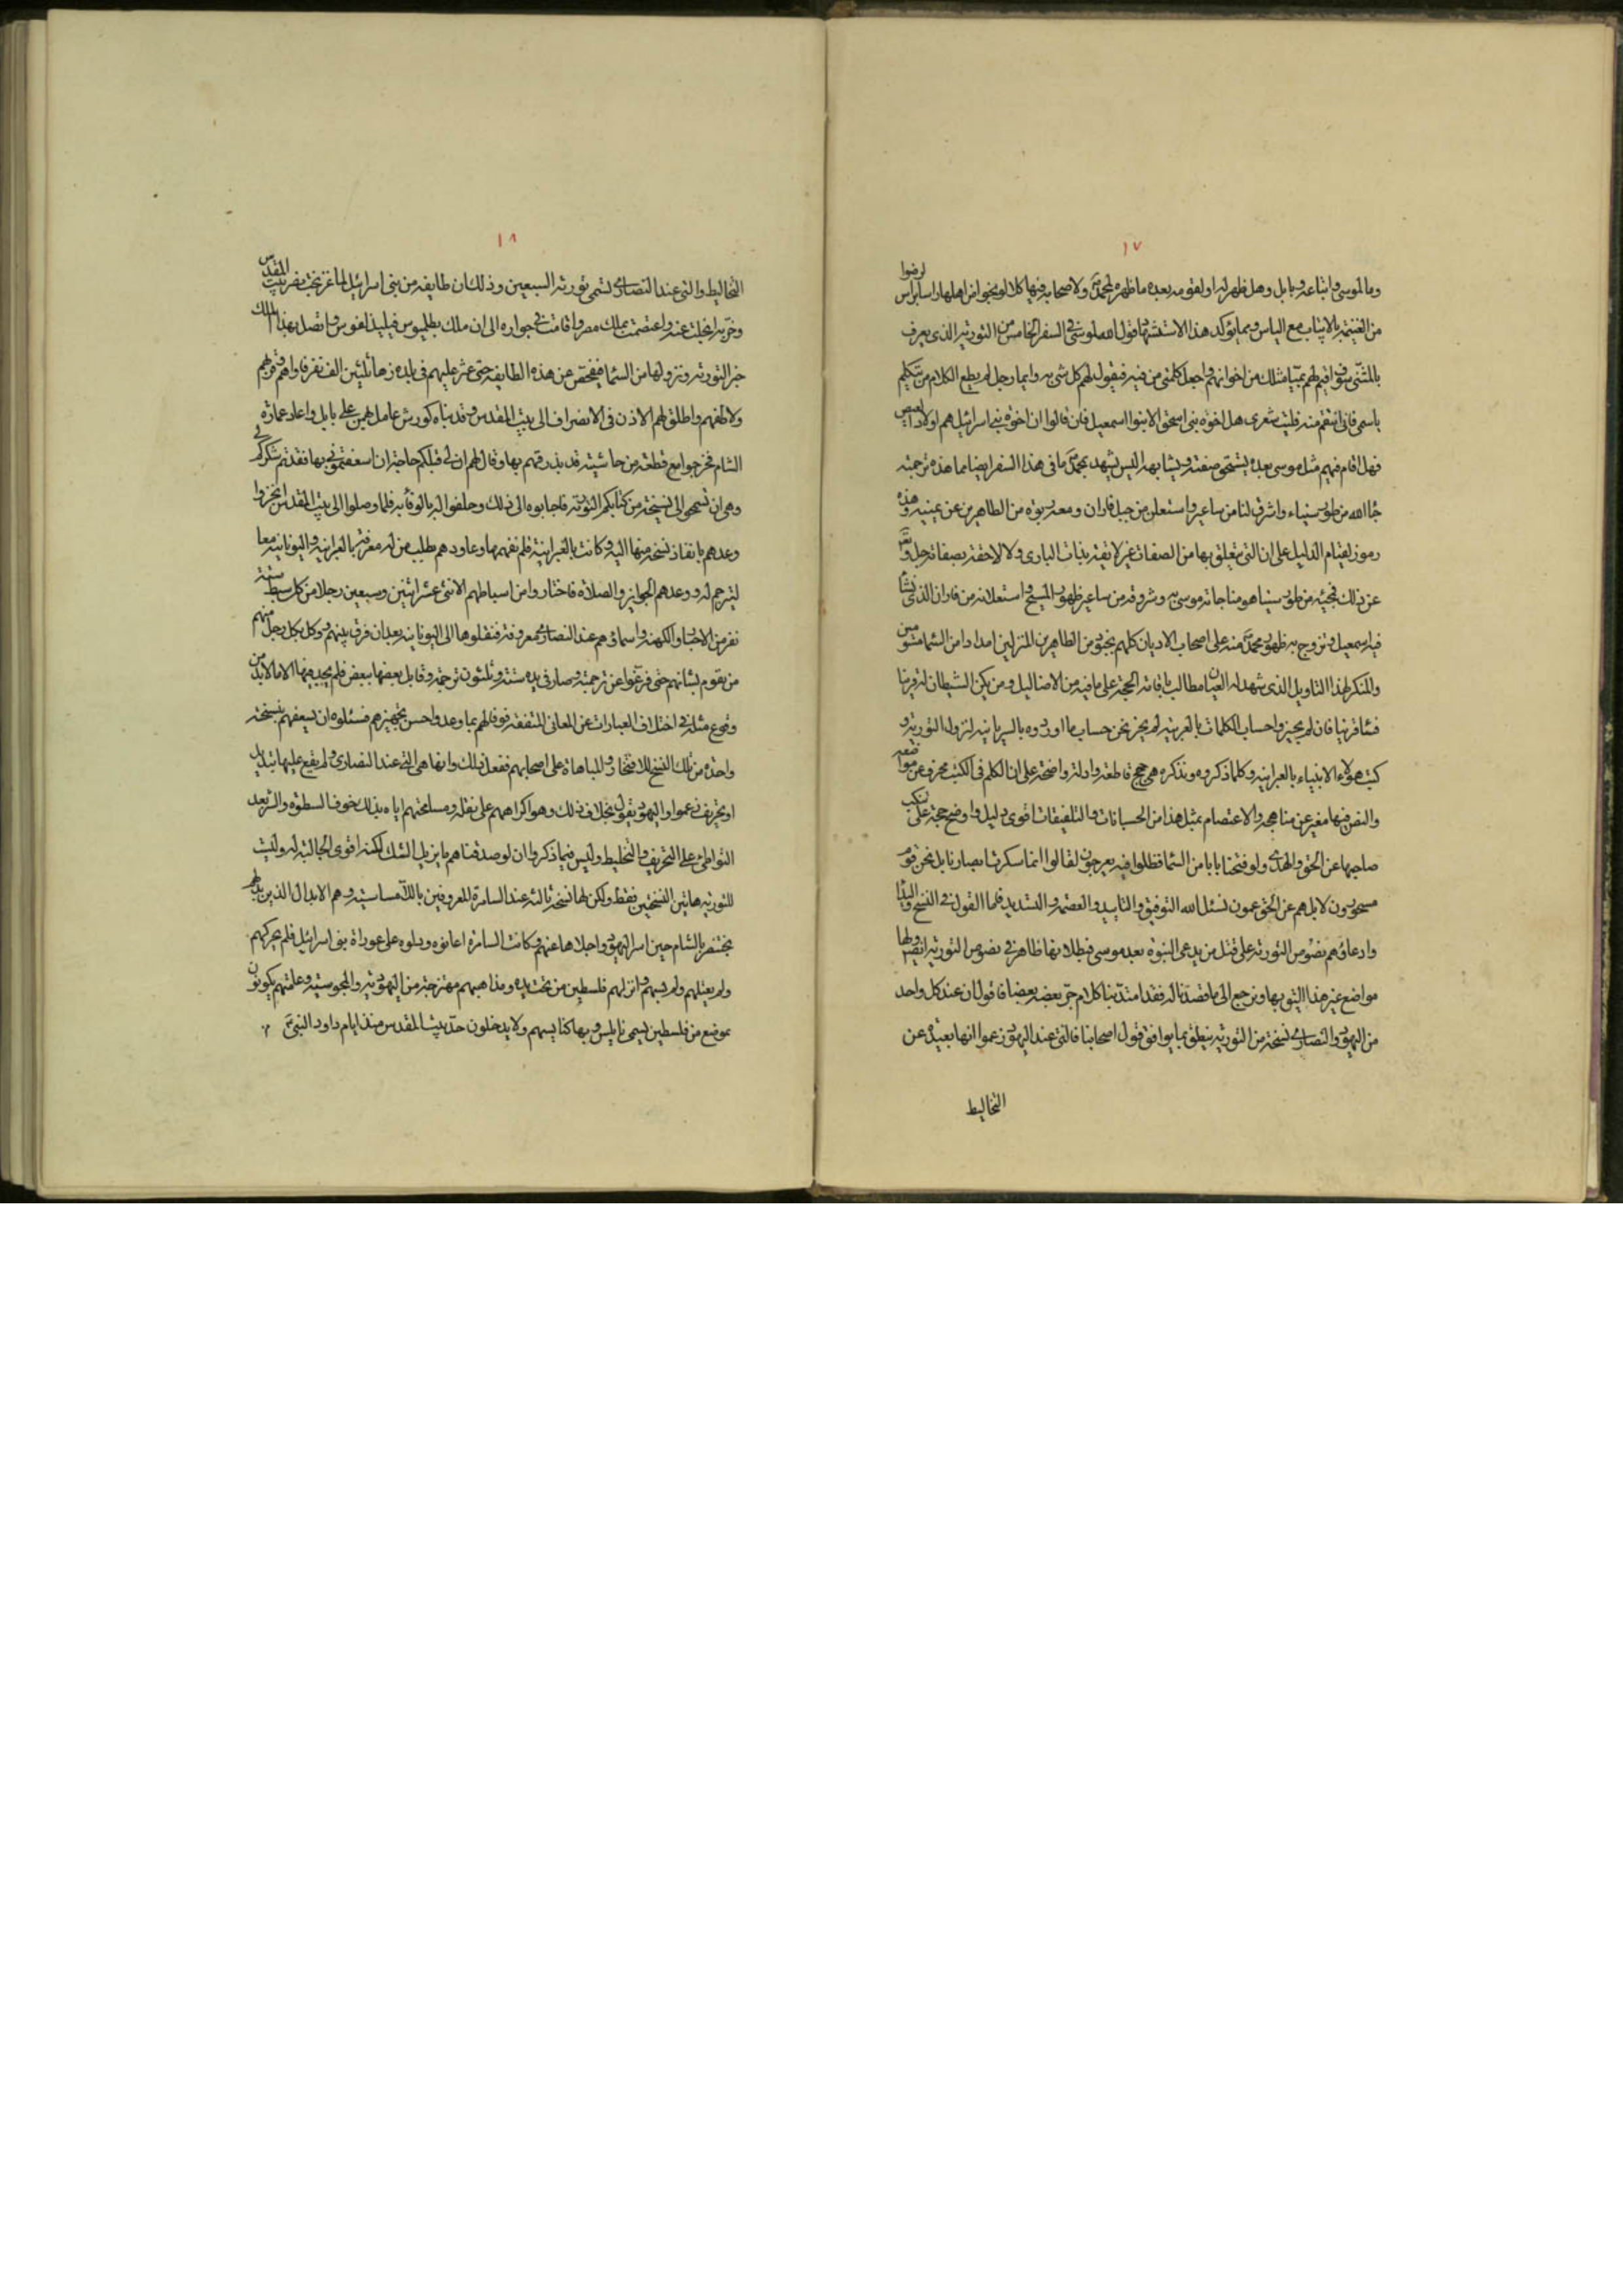 ١٧
وما لموسى واتباعه وبابل وهل ظهر له او لقومه بعده ما ظهر لمحمد ولاصحابه فيها كلا لو ينجوا من اهلها راسا براس لرضوا
من الغنيمة بالاياب مع الياس ومما يؤكد هذا الاستشهاد قول الله لموسى فى السفر الخامس من التورية الذى يعرف
بالمثنى سوف اقيم لهم نبيا مثلك من اخوانهم واجعل كلمتى من فيه فيقول لهم كل شى به وايما رجل لم يطع الكلام من تكلم
باسمى فانى انتقم منه فليت شعرى هل اخوة بنى اسحق الا بنوا اسمعيل فان قالوا ان اخوة بنى اسرائيل هم اولاد العيص
فهل اقام فيهم مثل موسى بعده يستحق صفته ويشابهه اليس يشهد بمحمد ما فى هذا السفر ايضا مما هذه ترجمته
جاء الله من طور سيناء واشرق لنا من ساعير واستعلن من جبل فاران ومعه ربوة من الطاهرين عن يمينه وهذه
رموز لقيام الدليل على ان التى يتعلق بها من الصفات غير لايقة بذات البارى ولا لاحقة بصفاته جل وتعالى
عن ذلك فمجيئه من طور سينا هو مناجاته موسى به وشروقه من ساعير ظهور المسيح واستعلانه من فاران الذى نشأ
فيه اسمعيل وتزوج به ظهور محمد منه على اصحاب الاديان كلهم بجنود من الطاهرين المنزلين امدادا من السما مسومين
والمنكر لهذا التاويل الذى شهد له العيان مطالب باقامة الحجة على ما فيه من الاضاليل ومن يكن الشيطان له قرينا
فساء قرينا فان لم يجيزوا حساب الكلمات بالعربية لم يجز نحن حساب ما اوردوه بالسريانية لنزول التورية و
كتب هؤلاء الانبياء بالعبرانية وكلما ذكروه ونذكره هى حجج قاطعة وادلة واضحة على ان الكلم فى الكتب محرف عن مواضعه
والنص فيها مغير عن مناهجه والاعتصام بمثل هذا من الحسبانات والتلفيقات اقوى دليل واوضح حجة على تنكب
صاحبها عن الحق والهدى ولو فتحنا بابا من السما فظلوا فيه يعرجون لقالوا انما سكرت ابصارنا بل نحن قوم
مسحورون لا بل هم عن الحق عمون نسئل الله التوفيق والتاييد والعصمة والتسديد فاما القول فى النسخ والبدا
وادعاؤهم نصوص التورية على قتل من يدعى النبوة بعد موسى فبطلانها ظاهر فى نصوص التورية انفسها ولها
مواضع غير هذا اليق بها ونرجع الى ما قصدنا له فقد امتد بنا كلام جر بعضه بعضا فاقول ان عند كل واحد
من اليهود والنصارى نسخة من التورية ينطق بما يوافق قول اصحابها فالتى عند اليهود زعموا انها بعيدة عن
التخاليط
١٨
التخاليط والتى عند النصارى تسمى تورية السبعين وذلك ان طايفة من بنى اسرائيل لما غزا بخت نصر بيت المقدس
وخربه انجلت عنه واعتصمت بملك مصر واقامت فى جواره الى ان ملك بطلميوس فيليذلفوس واتصل بهذا الملك
خبر التورية ونزولها من السما ففحص عن هذه الطايفة حتى عثر عليهم فى بلده زهاء ثلثين الف نفر فاواهم وقربهم
ولاطفهم واطلق لهم الاذن فى الانصراف الى بيت المقدس وقد بناه كورش عامل بهمن على بابل واعاد عمارة
الشام فخرجوا مع قطعة من حاشيته قد بذرقهم بها وقال لهم ان لى قبلكم حاجة ان اسعفتمونى بها فقد تم شكركم لى
وهى ان تسمحوا لى بنسخة من كتابكم التورية فاجابوه الى ذلك وحلفوا له بالوفا به فلما وصلوا الى بيت المقدس انجزوا
وعدهم بانفاذ نسخة منها اليه وكانت بالعبرانية فلم يفهمها وعاودهم بطلب من له معرفة بالعبرانية واليونانية معا
ليترجم له ووعدهم الجوايز والصلات فاختاروا من اسباطهم الاثنى عشر اثنين وسبعين رجلا من كل سبط ستة
نفر من الاحبار والكهنة واسماؤهم عند النصارى معروفة فنقلوها الى اليونانية بعد ان فرق بينهم ووكل بكل رجل منهم
من يقوم بشانهم حتى فرغوا عن ترجمته وصار فى يده ستة وثلثون ترجمة وقابل بعضها ببعض فلم يجد فيها الا ما لا بد من
وقوع مثله فى اختلاف العبارات عن المعانى المتفقة فوفا لهم بما وعد واحسن تجهيزهم فسئلوه ان يسعفهم بنسخة
واحدة من تلك النسخ للافتخار وللمباهاة على اصحابهم ففعل ذلك وانها هى التى عند النصارى ولم يقع عليها تبديل
او تحريف زعموا واليهود يقول بخلاف ذلك وهو اكراههم على نقله ومسامحتهم اياه بذلك خوف السطوة والشر بعد
التواطئ على التحريف والتخليط وليس فيما ذكروا ان لو صدقناهم ما يزيل الشك لكنه اقوى الجالبة له وليست
للتورية هاتين النسختين فقط ولكن لها نسخة ثالثة عند السامرة المعروفين باللامساسية وهم الابدال الذين بدلهم
بختنصر بالشام حين اسر اليهود واجلاها عنهم وكانت السامرة اعانوه ودلوه على عورات بنى اسرائيل فلم يحركهم
ولم يقتلهم ولم يسبهم وانزلهم فلسطين من تحت يده ومذاهبهم ممتزجة من اليهودية والمجوسية وعامتهم يكونون
بموضع من فلسطين يسمى نابلس وبها كنايسهم ولا يدخلون حد بيت المقدس منذ ايام داود النبى